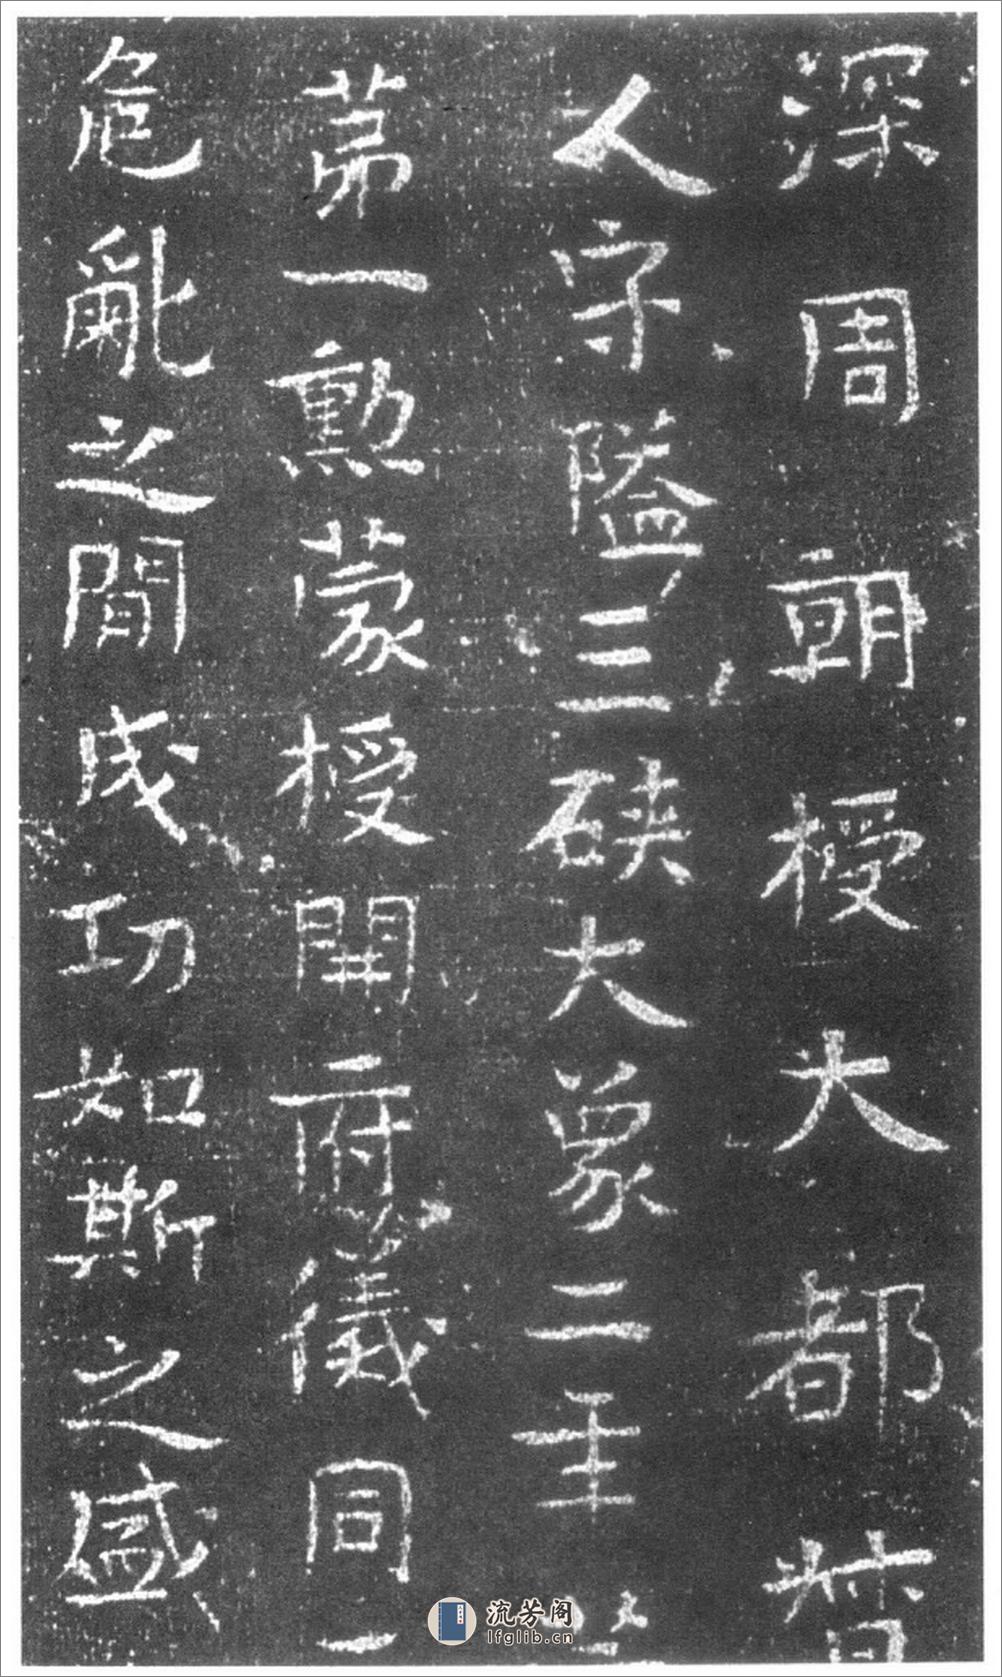 深周朝授大都督
人字隘三硤大象二年
第一勲蒙授開府儀同三
危亂之間成功如斯之盛
流芳阁
lfglib.cn